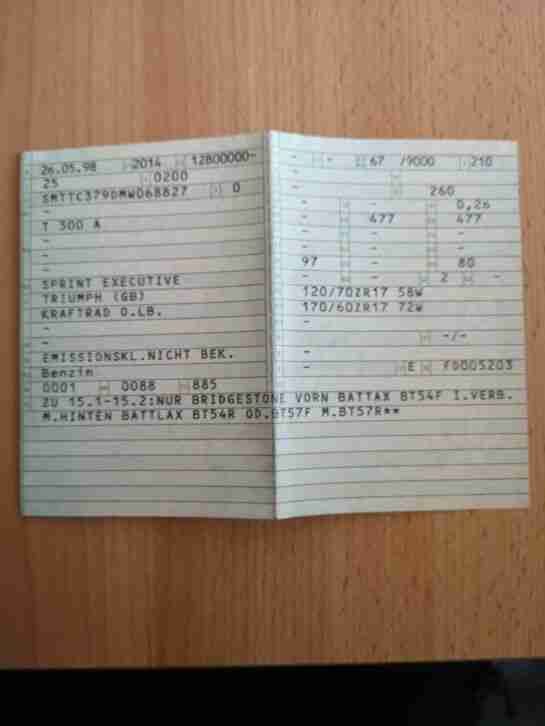 26.05.98 2014 12800000-
25 0200
SMTTC379DMW068827 0
-
T 300 A
-
-
-
SPRINT EXECUTIVE
TRIUMPH (GB)
KRAFTRAD O.LB.
-
-
EMISSIONSKL.NICHT BEK.
Benzin
0001 0088 885
- - 67 /9000 210
-
- 260
- - 0,26
- 477 477
- - -
- - -
97 - 80
- - 2 -
120/70ZR17 58W
170/60ZR17 72W
-
- -/-
-
- E FD005203
ZU 15.1-15.2:NUR BRIDGESTONE VORN BATTAX BT54F I.VERB.
M.HINTEN BATTLAX BT54R OD.BT57F M.BT57R**